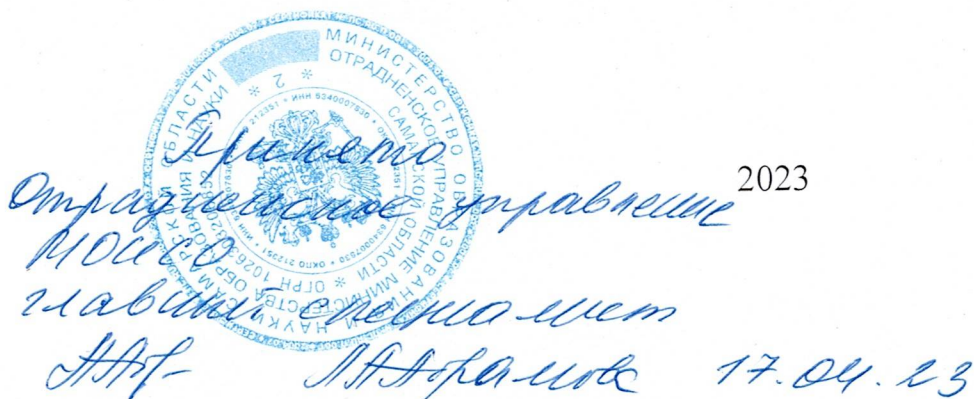 МИНИСТЕРСТВО ОБРАЗОВАНИЯ И НАУКИ САМАРСКОЙ ОБЛАСТИ
ОТРАДНЕНСКОЕ УПРАВЛЕНИЕ МИНИСТЕРСТВА ОБРАЗОВАНИЯ И НАУКИ
САМАРСКОЙ ОБЛАСТИ
* 2 *
2023
Принято
Отрадненское управление
МОиНСО
главный специалист
17.04.23